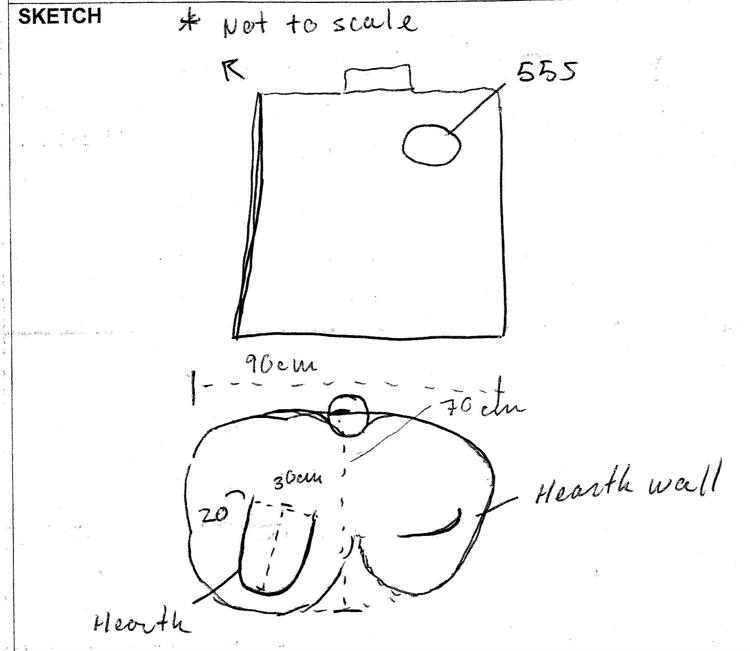 SKETCH
* Not to scale
555
90cm
70cm
30cm
20
Hearth wall
Hearth